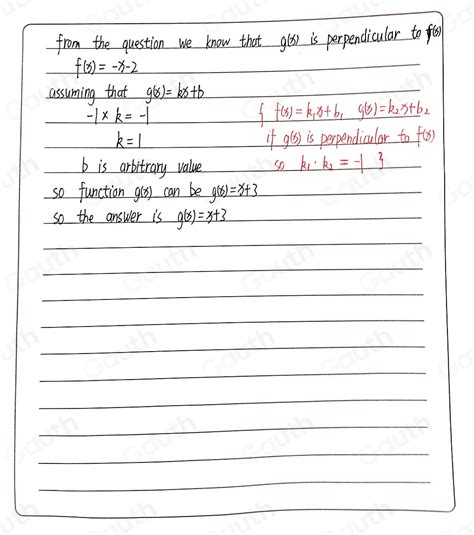 from the question we know that g(x) is perpendicular to f(x)
f(x) = -x-2
assuming that g(x) = kx+b
-1 × k = -1
k = 1
b is arbitrary value
so function g(x) can be g(x) = x+3
so the answer is g(x) = x+3
{ f(x) = k₁x+b₁ g(x) = k₂x+b₂
if g(x) is perpendicular to f(x)
so k₁·k₂ = -1 }
Gauth